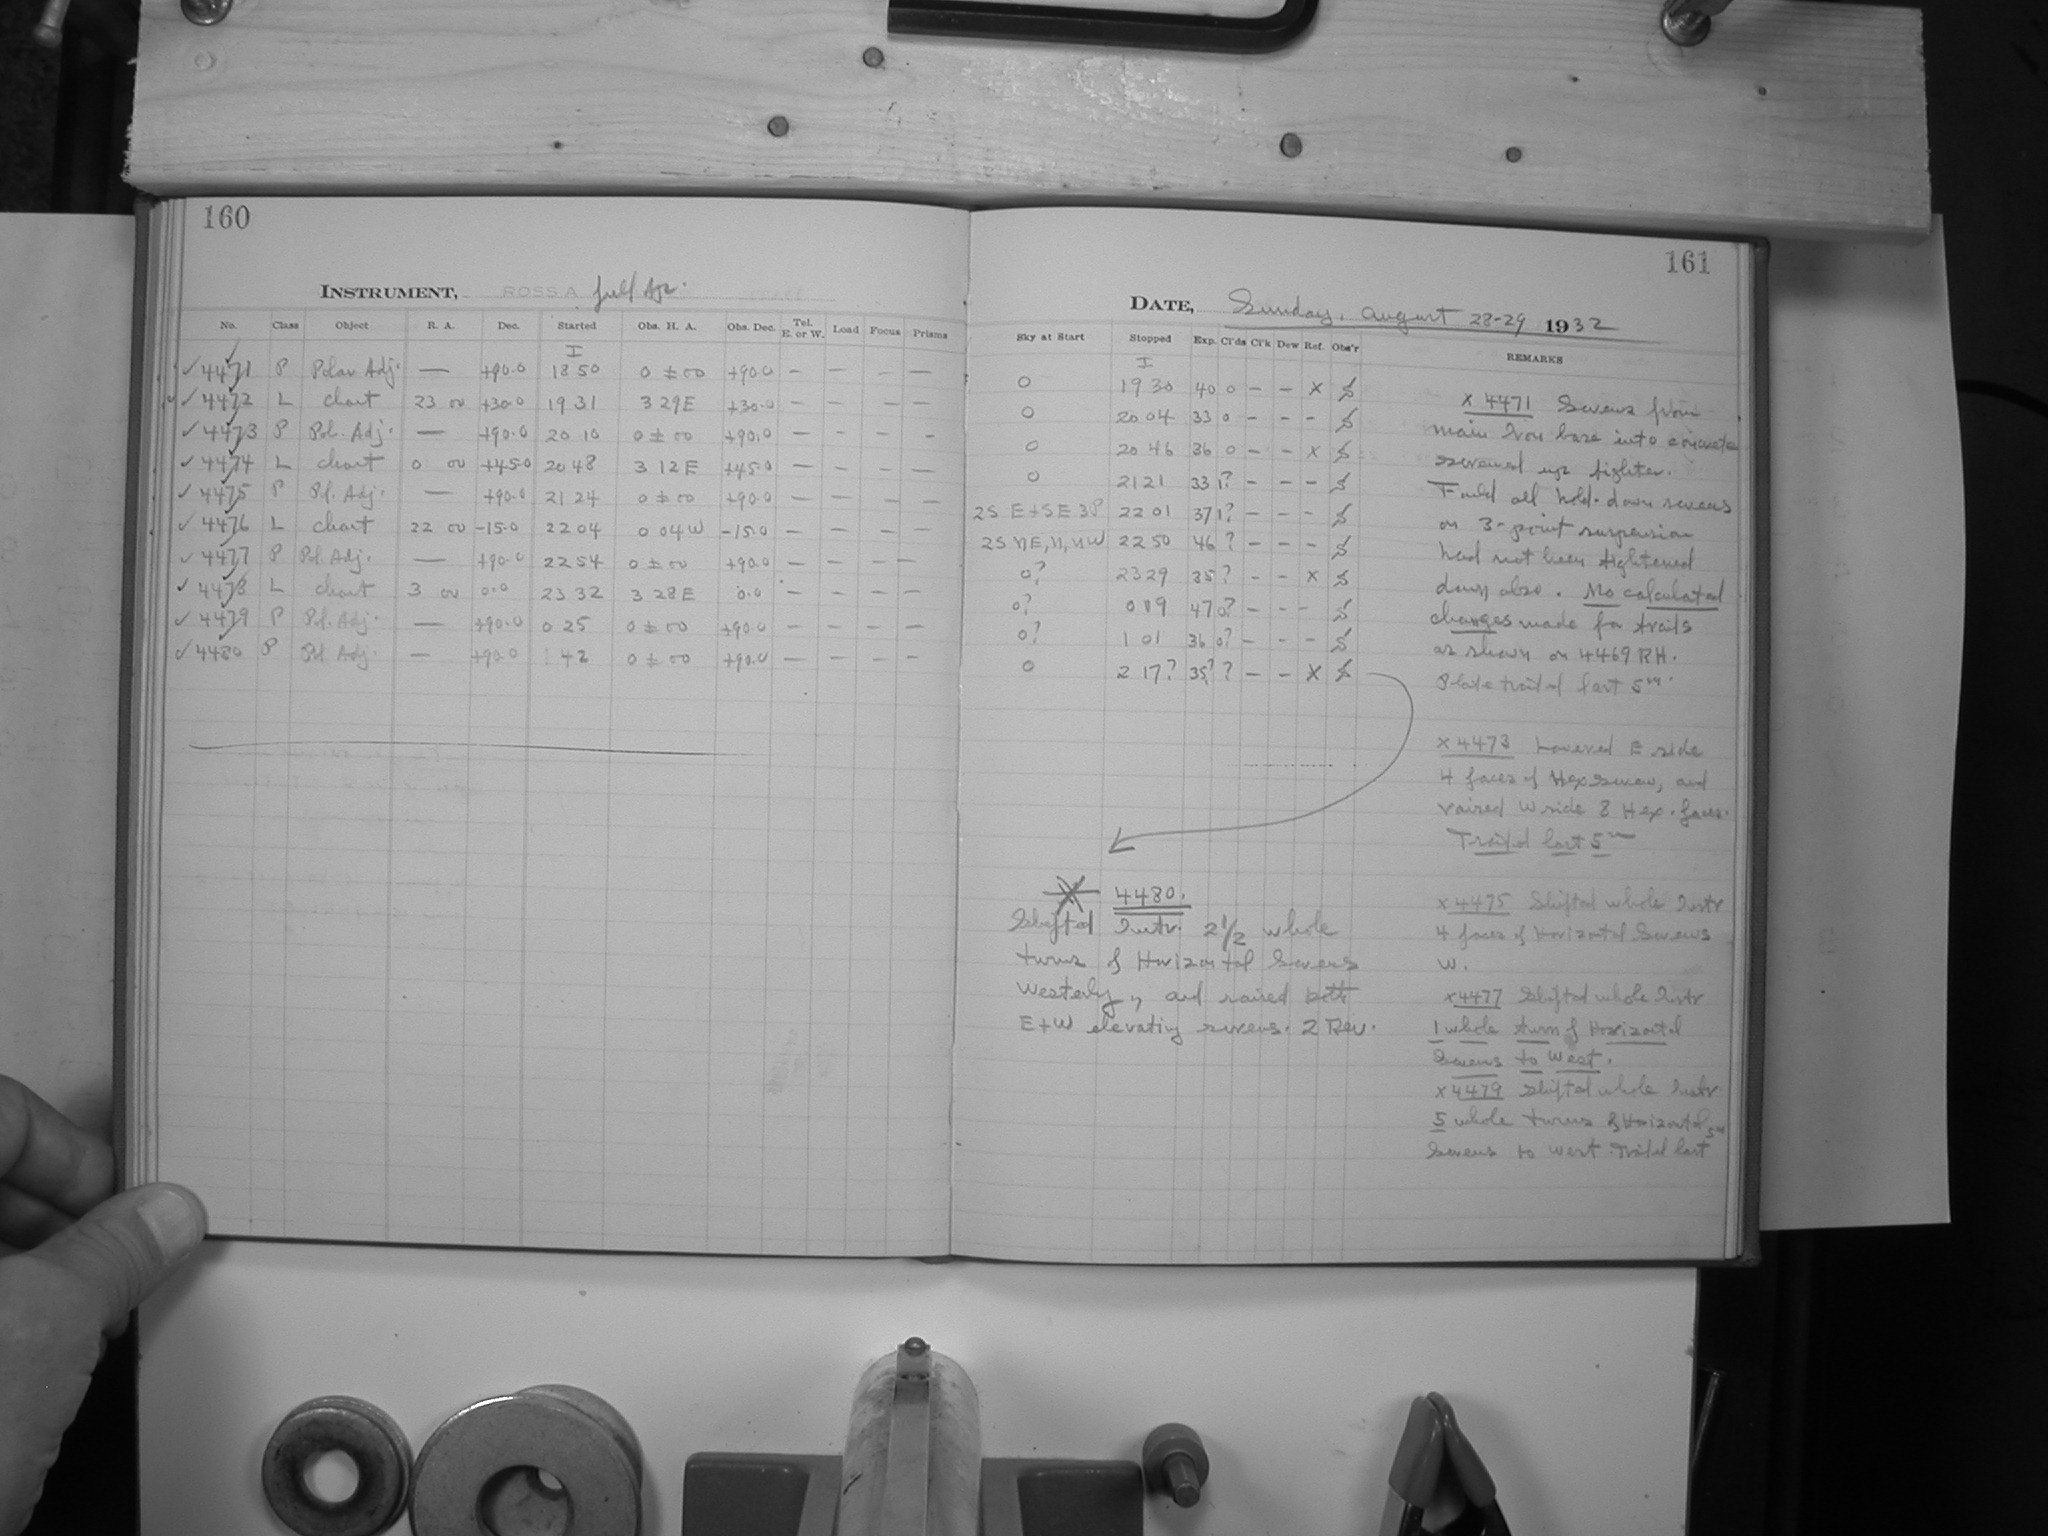 160
INSTRUMENT, ROSS A full Apr.
No. Class Object R. A. Dec. Started Obs. H. A. Obs. Dec. Tel. E. or W. Load Focus Prisms
I
✓ 4471 P Polar Adj. — +90.0 18 50 0 ± 00 +90.0 — — — —
✓ 4472 L chart 23 00 +30.0 19 31 3 29 E +30.0 — — — —
✓ 4473 P Pol. Adj. — +90.0 20 10 0 ± 00 +90.0 — — — —
✓ 4474 L chart 0 00 +45.0 20 48 3 12 E +45.0 — — — —
✓ 4475 P Pl. Adj. — +90.0 21 24 0 ± 00 +90.0 — — — —
✓ 4476 L chart 22 00 -15.0 22 04 0 04 W -15.0 — — — —
✓ 4477 P Pol Adj. — +90.0 22 54 0 ± 00 +90.0 — — — —
✓ 4478 L chart 3 00 0.0 23 32 3 28 E 0.0 — — — —
✓ 4479 P Pl. Adj. — +90.0 0 25 0 ± 00 +90.0 — — — —
✓ 4480 P Pol Adj. — +90.0 1 42 0 ± 00 +90.0 — — — —
161
DATE, Sunday, August 28-29 1932
Sky at Start Stopped Exp. Cl'ds Cl'k Dew Ref. Obs'r REMARKS
I
0 19 30 40 0 — — x S
0 20 04 33 0 — — — S
0 20 46 36 0 — — x S
0 21 21 33 1? — — — S
2S E+SE 3P 22 01 37 1? — — — S
2S NE, N, NW 22 50 46 ? — — — S
0? 23 29 35 ? — — x S
0? 0 19 47 0? — — — S
0? 1 01 36 0? — — — S
0 2 17? 35? ? — — x S
x 4471 Screws from
main Iron base into concrete
screwed up tighter.
Found all hold-down screws
on 3-point suspension
had not been tightened
down also. No calculated
changes made for trails
as shown on 4469 RH.
Plate trailed last 5m.
x 4473 Lowered E side
4 faces of Hex screw, and
raised W side 8 Hex. faces.
Trailed last 5m
x 4475 Shifted whole Instr
4 faces of Horizontal Screws
W.
x 4477 Shifted whole Instr
1 whole turn of Horizontal
Screws to West.
x 4479 Shifted whole Instr
5 whole turns of Horizontal
Screws to West. Trailed last 5m
4480.
Shifted Instr. 2 1/2 whole
turns of Horizontal Screws
Westerly, and raised both
E+W elevating screws. 2 Rev.